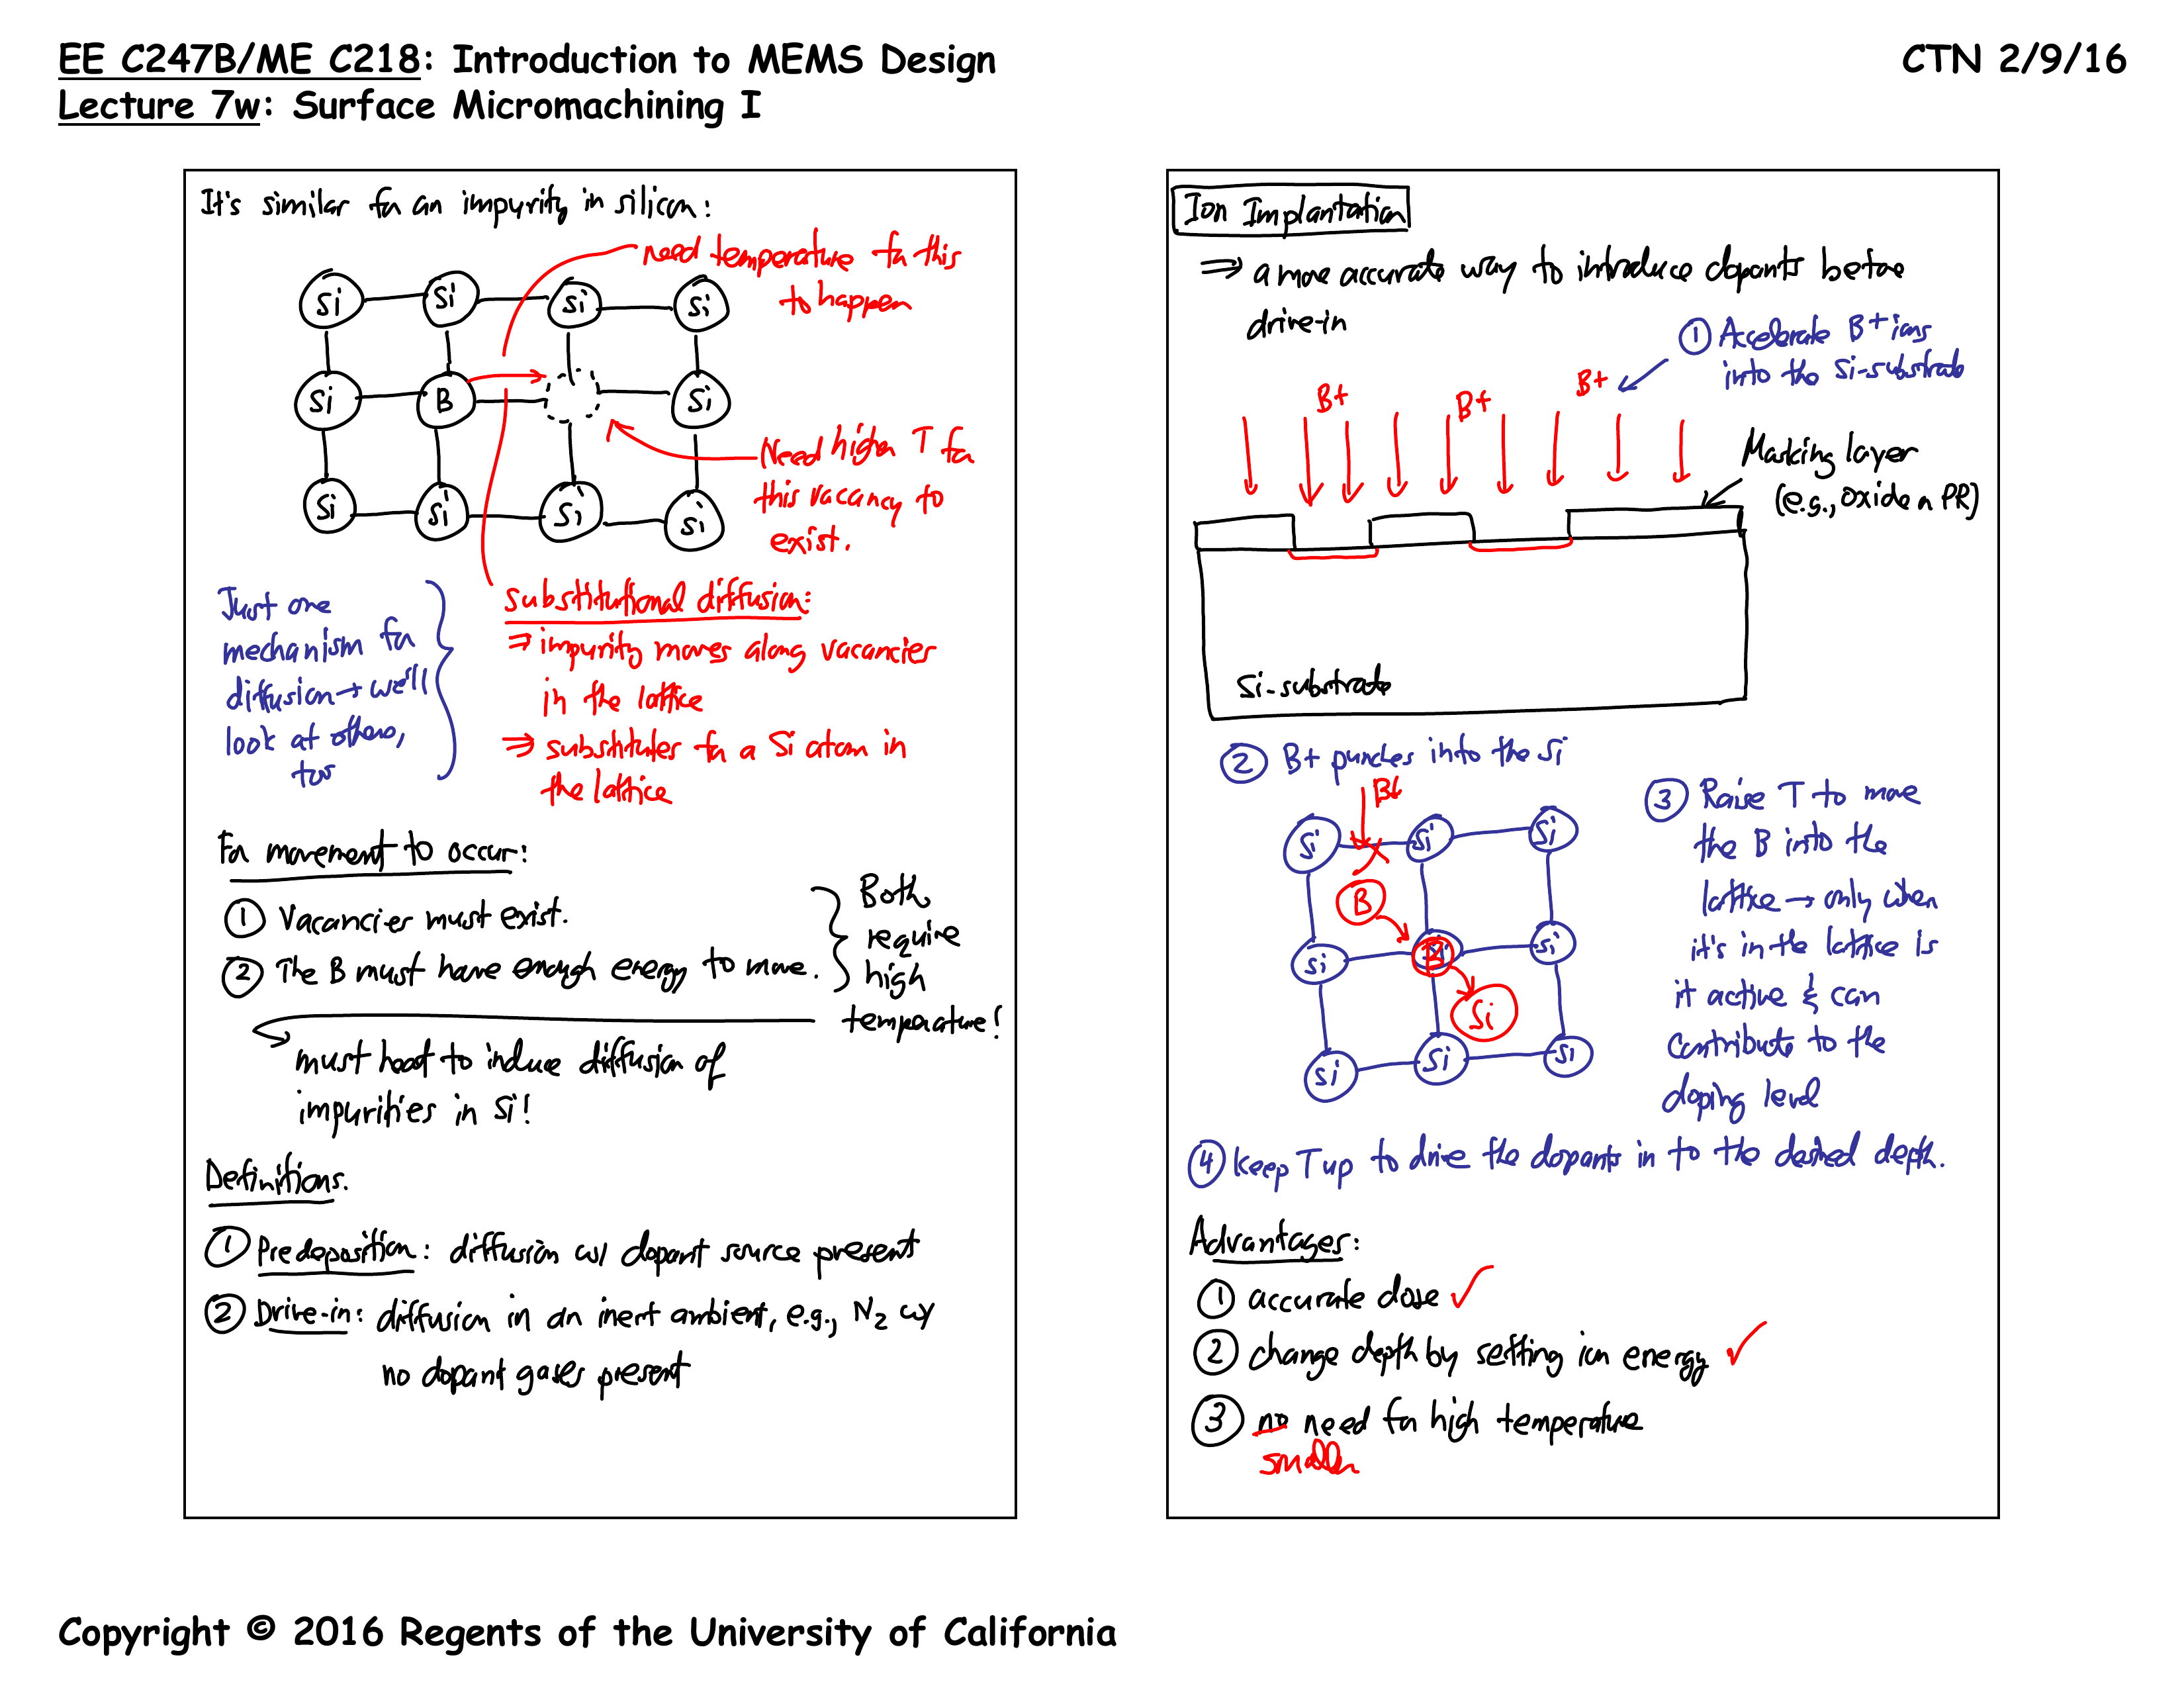 EE C247B/ME C218: Introduction to MEMS Design
CTN 2/9/16
Lecture 7w: Surface Micromachining I
It's similar for an impurity in silicon:
Need temperature for this
to happen
Si Si Si Si
Si B Si
Si Si Si Si
Need high T for
this vacancy to
exist.
Just one
mechanism for
diffusion → we'll
look at others,
too
Substitutional diffusion:
⇒ impurity moves along vacancies
in the lattice
⇒ substitutes for a Si atom in
the lattice
For movement to occur:
① Vacancies must exist.
② The B must have enough energy to move.
Both
require
high
temperature!
must heat to induce diffusion of
impurities in Si!
Definitions.
① Predeposition: diffusion w/ dopant source present
② Drive-in: diffusion in an inert ambient, e.g., N2 w/
no dopant gases present
Ion Implantation
⇒ a more accurate way to introduce dopants before
drive-in
① Acelerate B+ ions
into the Si-substrate
B+ B+ B+
Masking layer
(e.g., oxide or PR)
Si-substrate
② B+ punches into the Si
B+
Si Si Si
B
Si B Si
Si
Si Si Si
③ Raise T to move
the B into the
lattice → only when
it's in the lattice is
it active & can
contribute to the
doping level
④ Keep T up to drive the dopants in to the desired depth.
Advantages:
① accurate dose ✓
② change depth by setting ion energy ✓
③ no need for high temperature
smaller
Copyright © 2016 Regents of the University of California